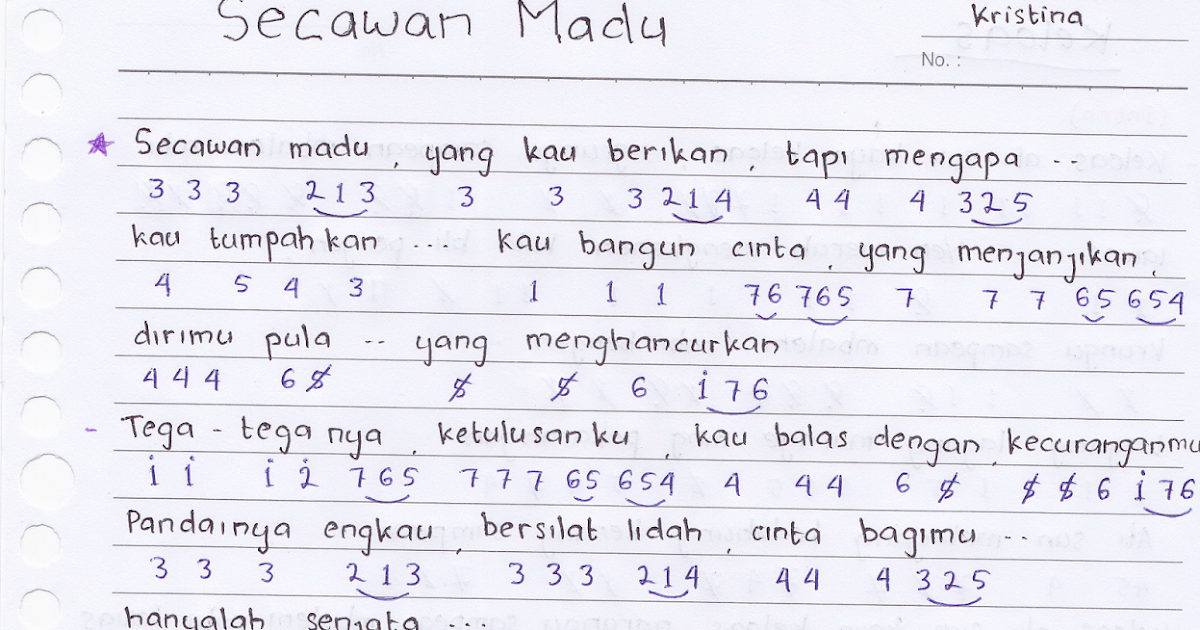 Secawan Madu
Kristina
No. :
Secawan madu, yang kau berikan, tapi mengapa ...
3 3 3 213 3 3 3 214 4 4 4 325
kau tumpahkan .... kau bangun cinta, yang menjanjikan,
4 5 4 3 1 1 1 76 765 7 7 7 65 654
dirimu pula .. yang menghancurkan
4 4 4 6 5̸ 5̸ 5̸ 6 i̇ 7 6
- Tega - teganya, ketulusanku, kau balas dengan, kecuranganmu
i̇ i̇ i̇ 2̇ 765 7 7 7 65 654 4 4 4 6 5̸ 5̸ 5̸ 6 i̇ 7 6
Pandainya engkau, bersilat lidah, cinta bagimu ..
3 3 3 213 3 3 3 214 4 4 4 325
hanyalah senjata ....